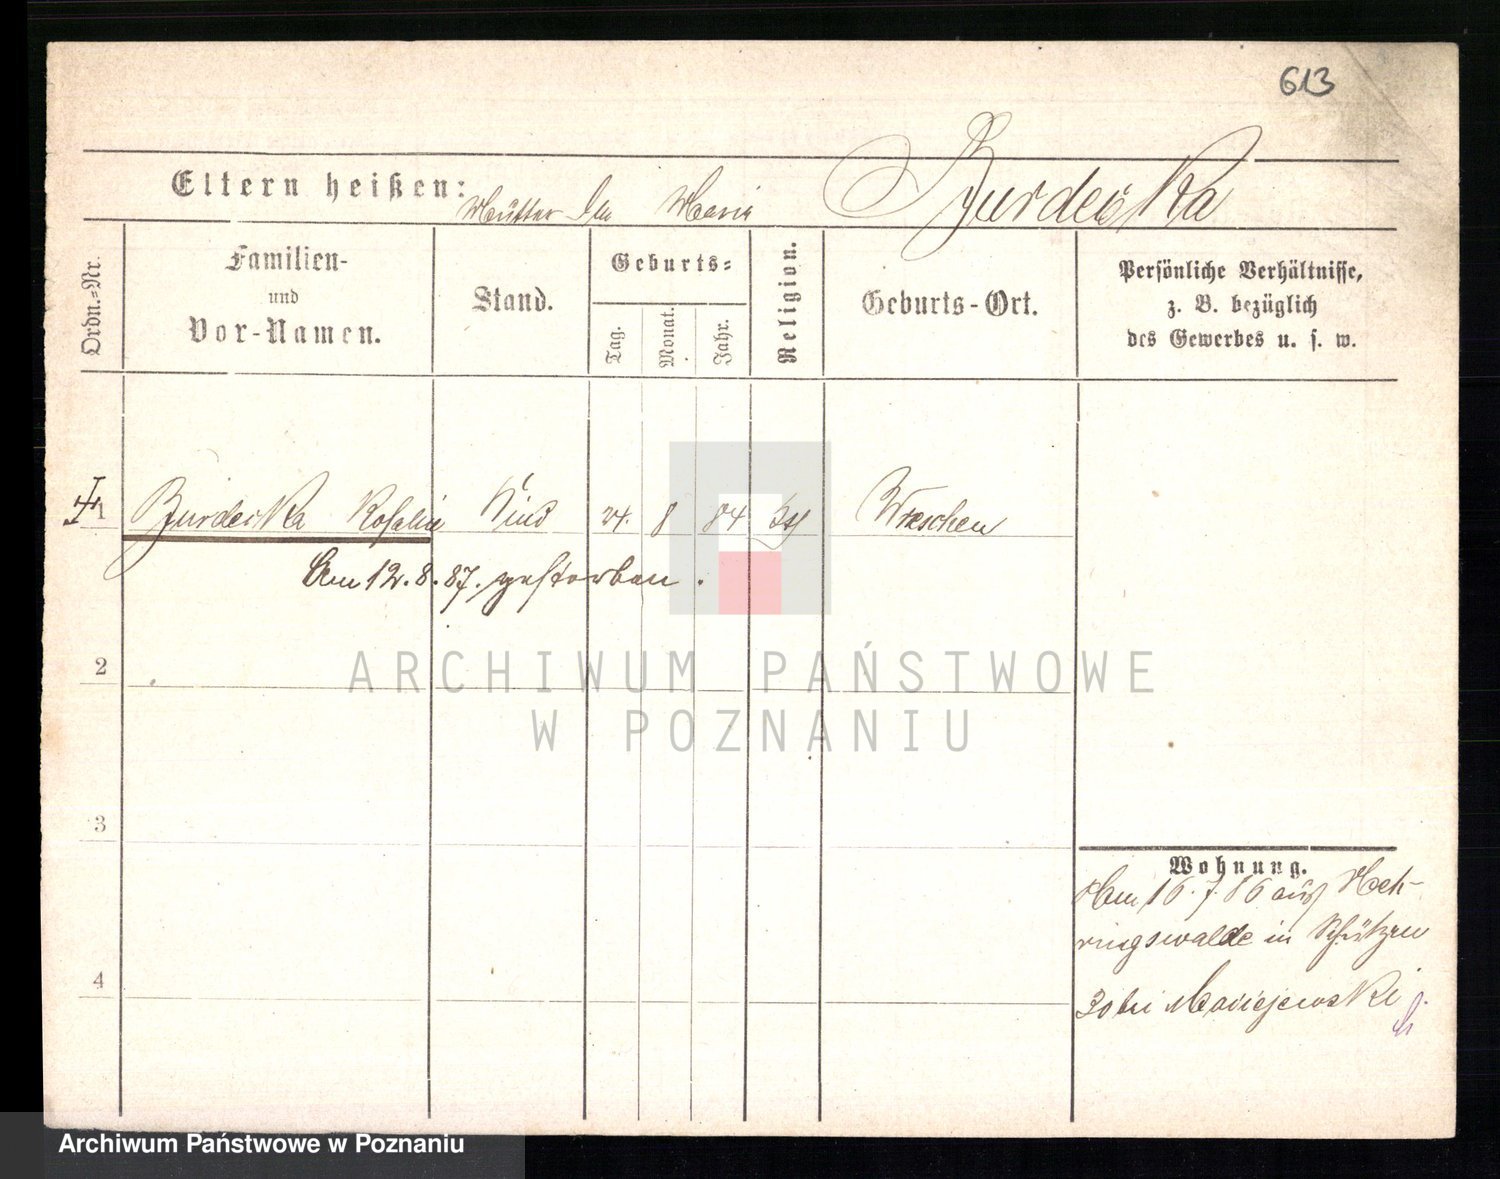 613
Burdeska
Eltern heißen: Mutter Maria
Ordn.=Nr.
Familien-
und
Vor-Namen.
Stand.
Geburts=
Tag.
Monat.
Jahr.
Religion.
Geburts-Ort.
Persönliche Verhältnisse,
z. B. bezüglich
des Gewerbes u. s. w.
1 Burdeska Rosalie Kind 24. 8 84 Wreschen
Am 12. 8. 87. gestorben.
2
3
4
Wohnung.
Am 16. 7. 86 aus Heh-
ringswalde in Schützen
30 bei Maciejewski
ARCHIWUM PAŃSTWOWE
W POZNANIU
Archiwum Państwowe w Poznaniu